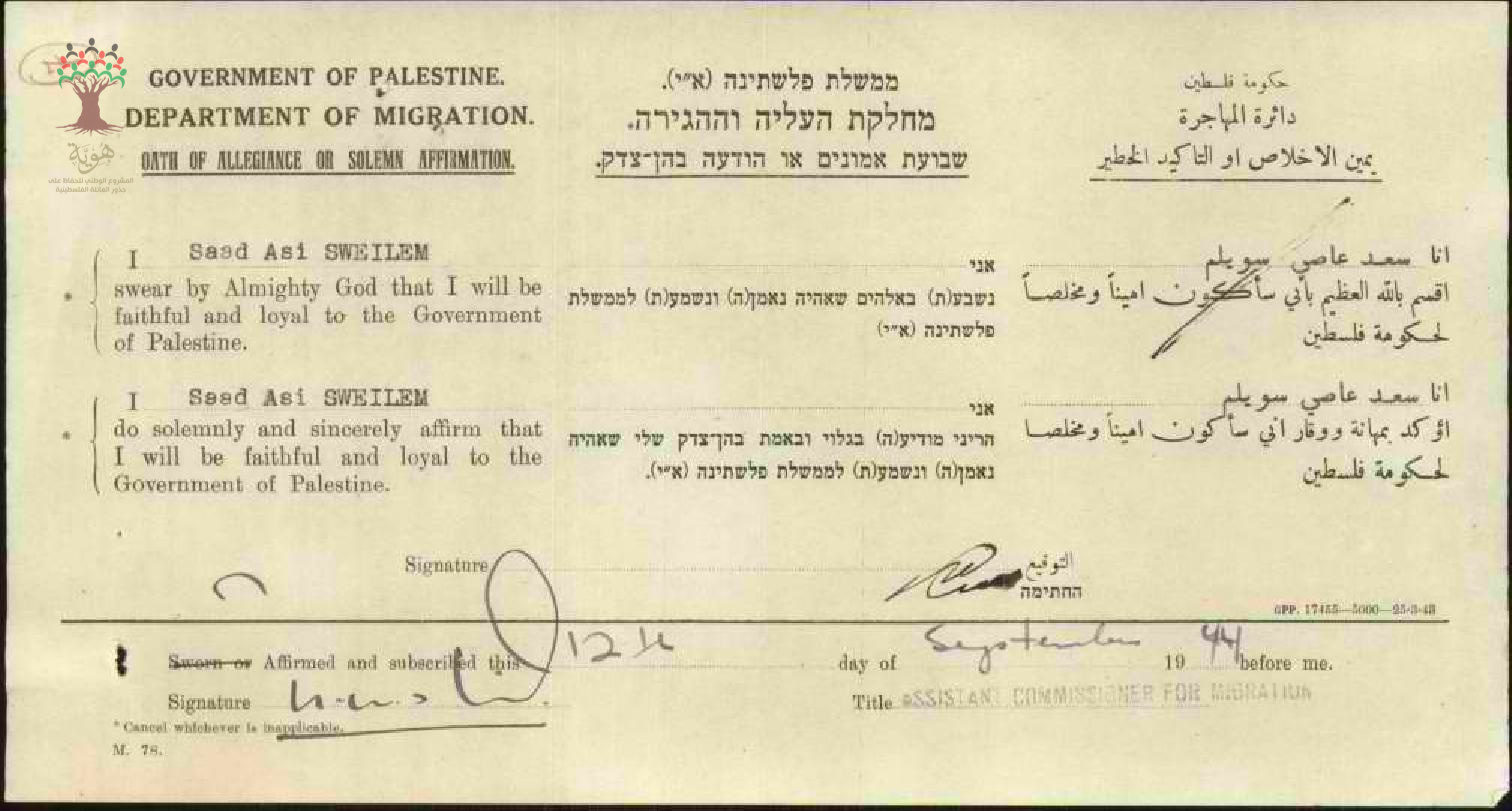 هَويّة
المشروع الوطني للحفاظ على
جذور العائلة الفلسطينية
GOVERNMENT OF PALESTINE.
DEPARTMENT OF MIGRATION.
OATH OF ALLEGIANCE OR SOLEMN AFFIRMATION.
ממשלת פלשתינה (א״י).
מחלקת העליה וההגירה.
שבועת אמונים או הודעה בהן־צדק.
حكومة فلسطين
دائرة المهاجرة
يمين الاخلاص او التاكيد الخطير
I Saad Asi SWEILEM
swear by Almighty God that I will be
faithful and loyal to the Government
of Palestine.
אני
נשבע(ת) באלהים שאהיה נאמן(ה) ונשמע(ת) לממשלת
פלשתינה (א״י)
انا سعد عاصي سويلم
اقسم بالله العظيم بأني سأكون اميناً ومخلصاً
لحكومة فلسطين
I Saad Asi SWEILEM
do solemnly and sincerely affirm that
I will be faithful and loyal to the
Government of Palestine.
אני
הריני מודיע(ה) בגלוי ובאמת בהן־צדק שלי שאהיה
נאמן(ה) ונשמע(ת) לממשלת פלשתינה (א״י).
انا سعد عاصي سويلم
اؤكد بمهانة ووقار اني سأكون اميناً ومخلصا
لحكومة فلسطين
Signature
التوقيع
החתימה
GPP. 17455—5000—25-3-43
Sworn or Affirmed and subscribed this 12th day of September 1944 before me.
Signature
Title ASSISTANT COMMISSIONER FOR MIGRATION
* Cancel whichever is inapplicable.
M. 78.